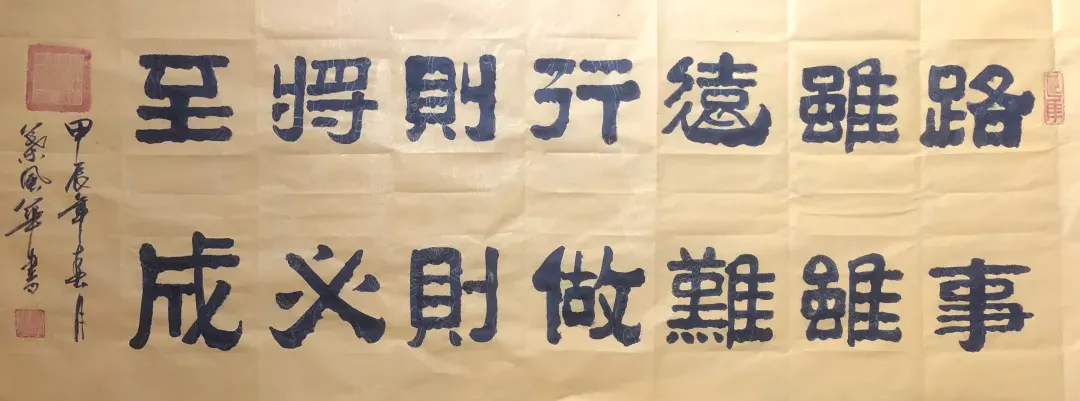 路雖遠行則將至
事雖難做則必成
甲辰年春月
風華書